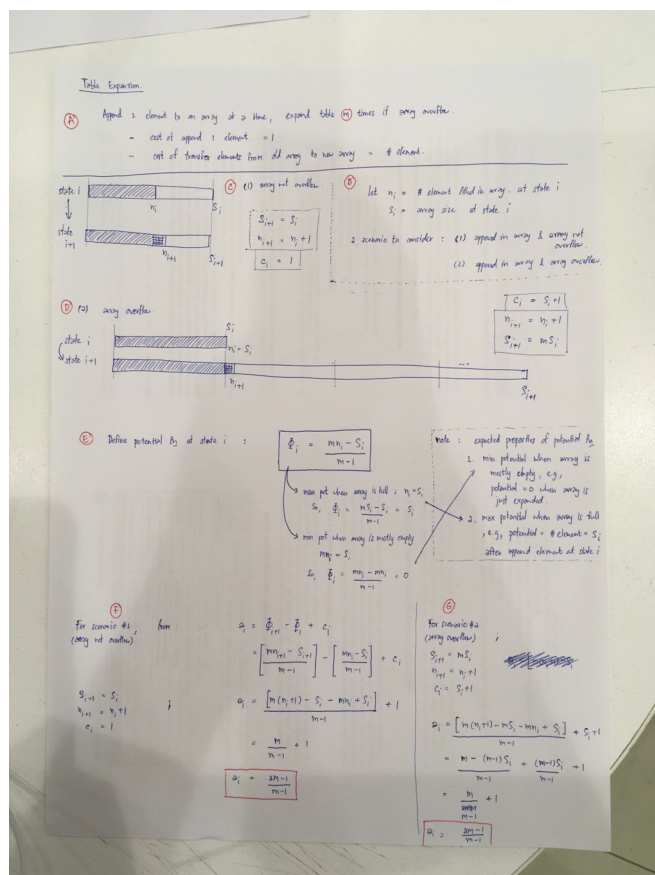 Table Expansion
(A) Append 1 element to an array at a time, expand table (m) times if array overflow.
- cost of append 1 element = 1
- cost of transfer elements from old array to new array = # element.
state i
n_i
S_i
state i+1
n_{i+1}
S_{i+1}
(C) (1) array not overflow.
S_{i+1} = S_i
n_{i+1} = n_i + 1
c_i = 1
(B)
let n_i = # element filled in array at state i
S_i = array size at state i
2 scenario to consider : (1) append in array & array not overflow.
(2) append in array & array overflow.
(D) (2) array overflow
state i
S_i
n_i = S_i
state i+1
n_{i+1}
...
S_{i+1}
C_i = S_i + 1
n_{i+1} = n_i + 1
S_{i+1} = m S_i
(E) Define potential fn at state i :
Φ_i = (m n_i - S_i) / (m-1)
max pot when array is full : n_i = S_i
So, Φ_i = (m S_i - S_i) / (m-1) = S_i
min pot when array is mostly empty
m n_i = S_i
So, Φ_i = (m n_i - m n_i) / (m-1) = 0
note : expected properties of potential fn
1. min potential when array is
mostly empty, e.g.,
potential = 0 when array is
just expanded
2. max potential when array is full
, e.g., potential = # element = S_i
after append element at state i
(F)
For scenario #1, from
(array not overflow)
S_{i+1} = S_i
n_{i+1} = n_i + 1
c_i = 1
;
a_i = Φ_{i+1} - Φ_i + c_i
= [(m n_{i+1} - S_{i+1}) / (m-1)] - [(m n_i - S_i) / (m-1)] + c_i
a_i = [m(n_i+1) - S_i - m n_i + S_i] / (m-1) + 1
= m / (m-1) + 1
a_i = (2m-1) / (m-1)
(G)
For scenario #2
(array overflow) ,
S_{i+1} = m S_i
n_{i+1} = n_i + 1
C_i = S_i + 1
a_i = [m(n_i+1) - m S_i - m n_i + S_i] / (m-1) + S_i + 1
= (m - (m-1) S_i) / (m-1) + ((m-1) S_i) / (m-1) + 1
= m / (m-1) + 1
a_i = (2m-1) / (m-1)